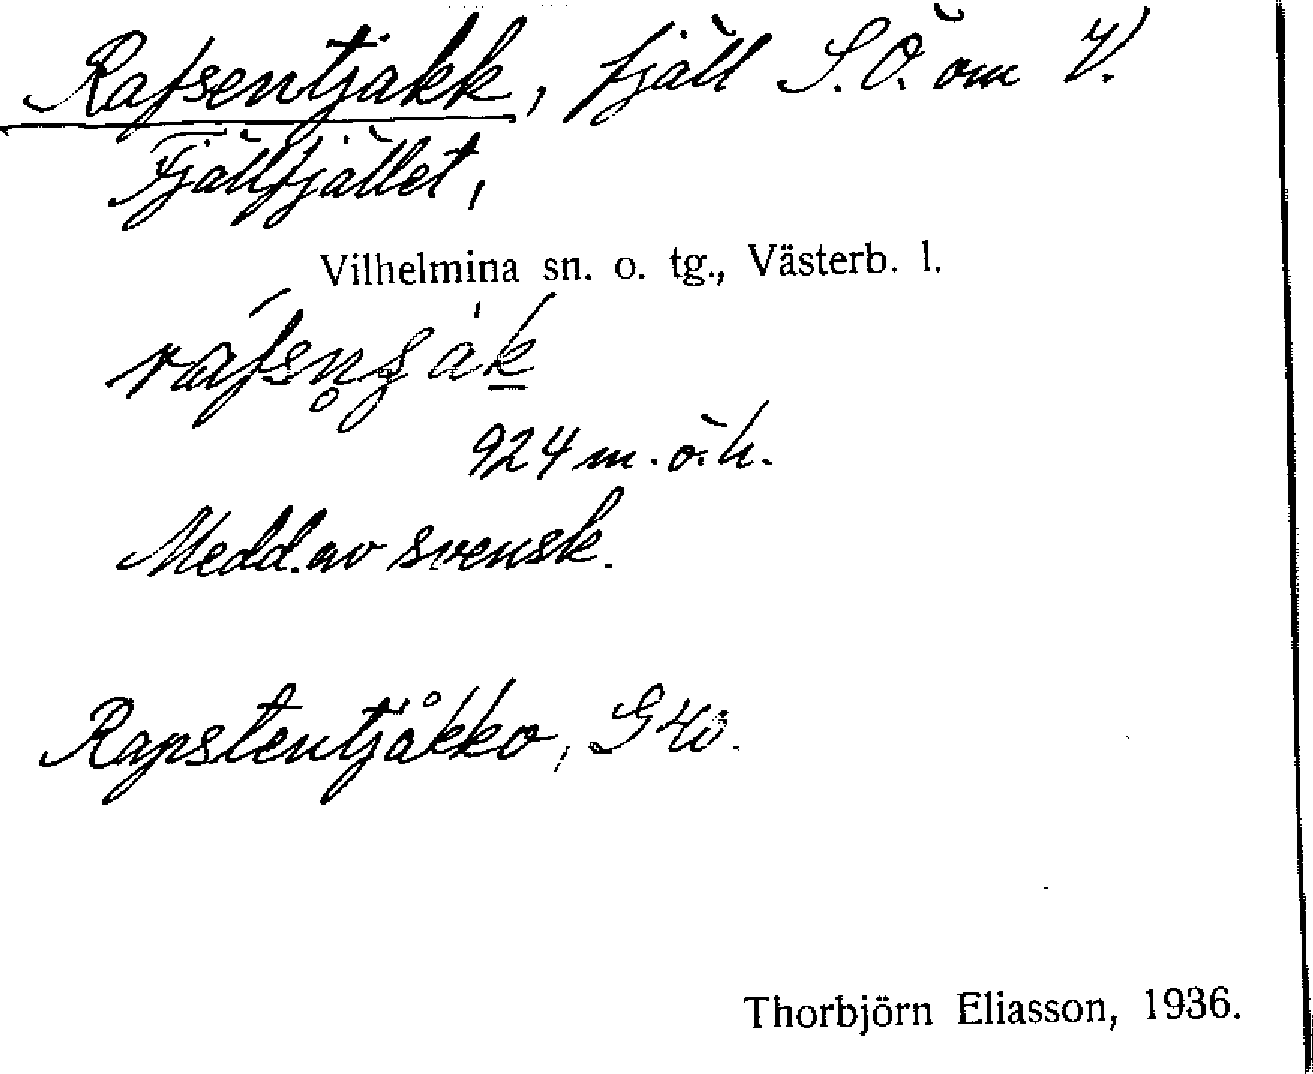 Rafsentjakk, fjäll S.O. om V.
Fjällfjället,
Vilhelmina sn. o. tg., Västerb. l.
924 m. ö. h.
Medd. av svensk.
Rapstentjåkko, G
Thorbjörn Eliasson, 1936.